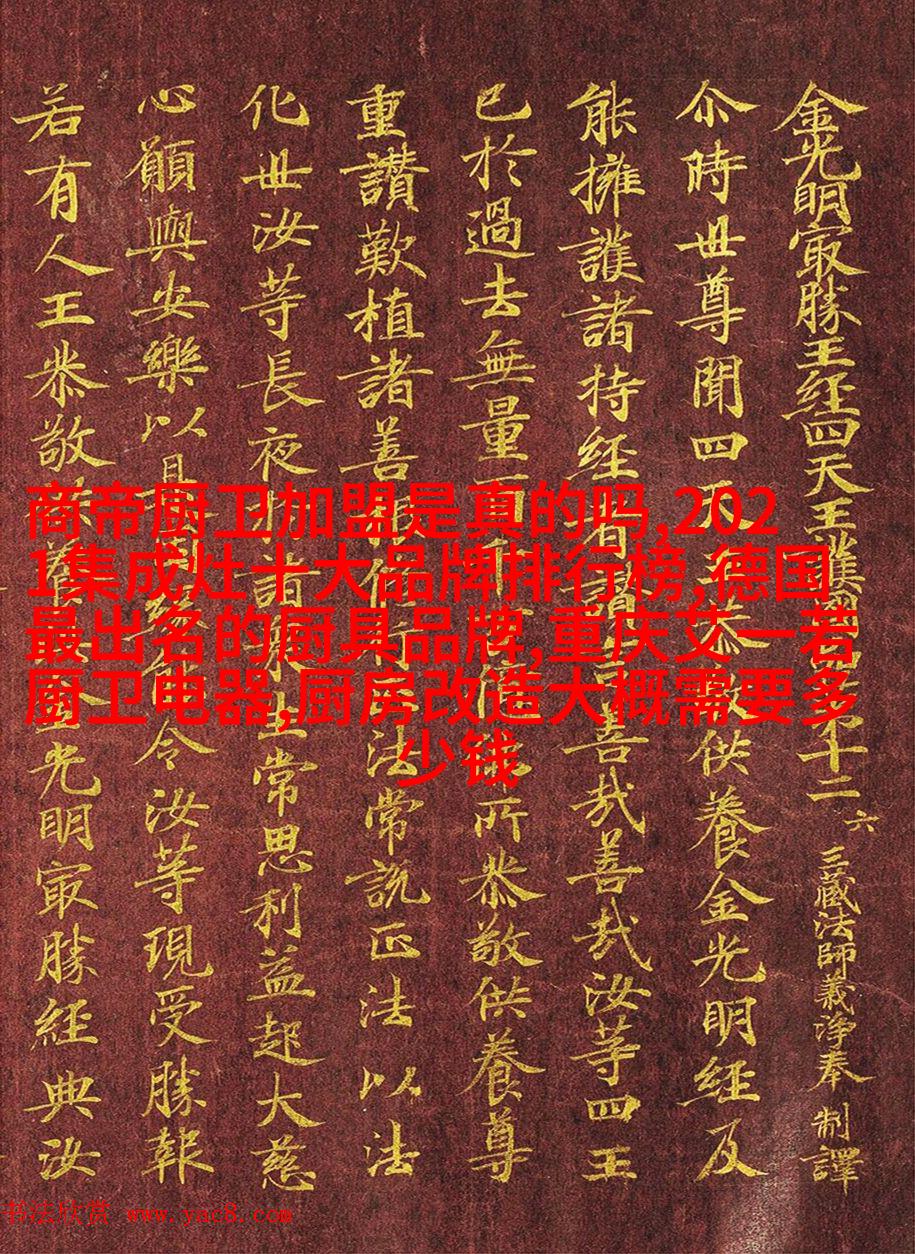 金光明㝡勝王経四天王護第十二 六 三藏法師義淨奉 制譯
尒時世尊聞四天王恭敬供養金光明経及
能擁護諸持経者讚言善哉善哉汝等四王
已於過去無量百千億佛所恭敬供養尊
重讚歎植諸善根修行正法常說正法以法
化世汝等長夜於諸眾生常思利益起大慈
心願與安樂以是因緣能令汝等現受勝報
若有人王恭敬供養此金光明㝡勝経典汝
商帝厨卫加盟是真的吗,202
1集成灶十大品牌排行榜,德国
最出名的厨具品牌,重庆艾一若
厨卫电器,厨房改造大概需要多
少钱
书法欣赏 www.yac8.com